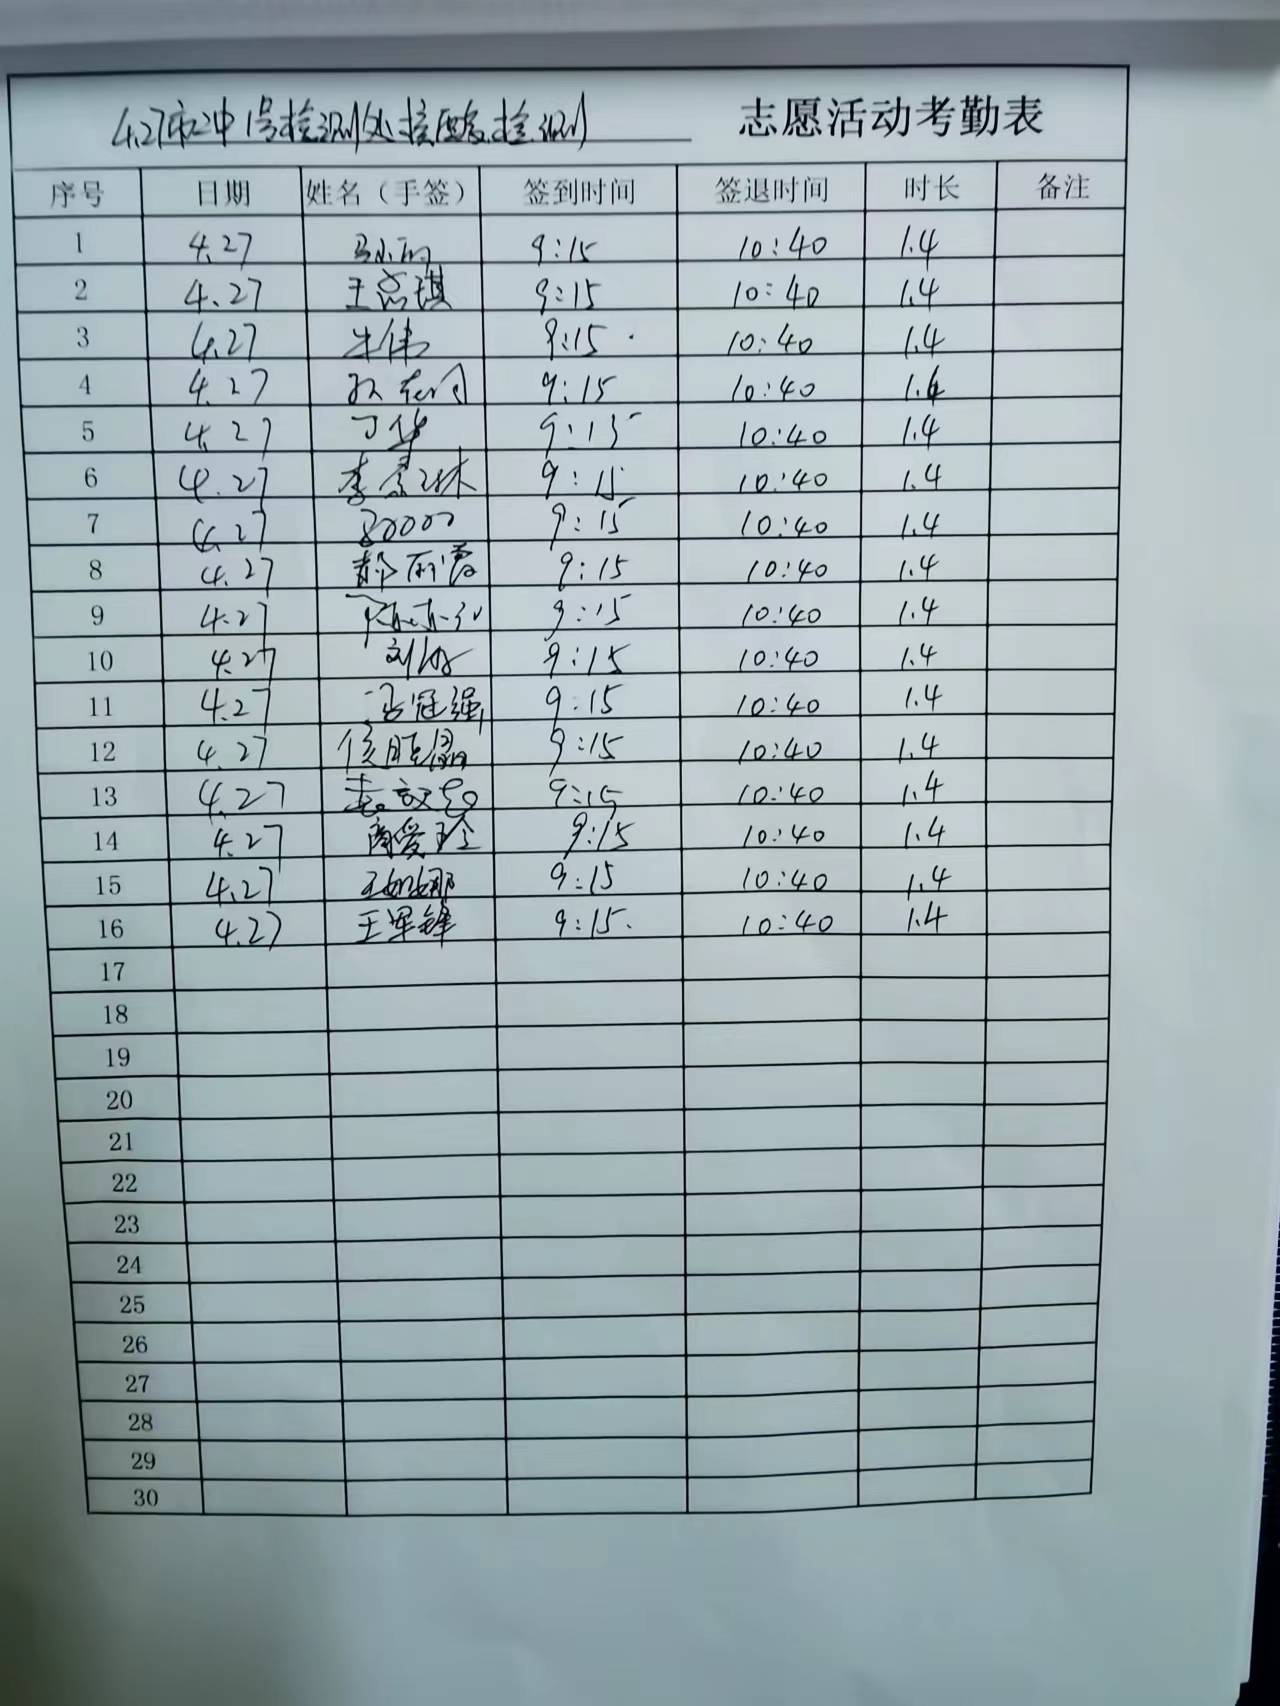 4.27市冲1号检测处核酸检测 志愿活动考勤表
序号 日期 姓名（手签） 签到时间 签退时间 时长 备注
1 4.27 9:15 10:40 1.4
2 4.27 9:15 10:40 1.4
3 4.27 牛伟 9:15 10:40 1.4
4 4.27 9:15 10:40 1.4
5 4.27 丁华 9:15 10:40 1.4
6 4.27 9:15 10:40 1.4
7 4.27 9:15 10:40 1.4
8 4.27 郝丽霞 9:15 10:40 1.4
9 4.27 9:15 10:40 1.4
10 4.27 9:15 10:40 1.4
11 4.27 9:15 10:40 1.4
12 4.27 侯晓晶 9:15 10:40 1.4
13 4.27 9:15 10:40 1.4
14 4.27 商爱玲 9:15 10:40 1.4
15 4.27 王娜娜 9:15 10:40 1.4
16 4.27 王军锋 9:15 10:40 1.4
17
18
19
20
21
22
23
24
25
26
27
28
29
30